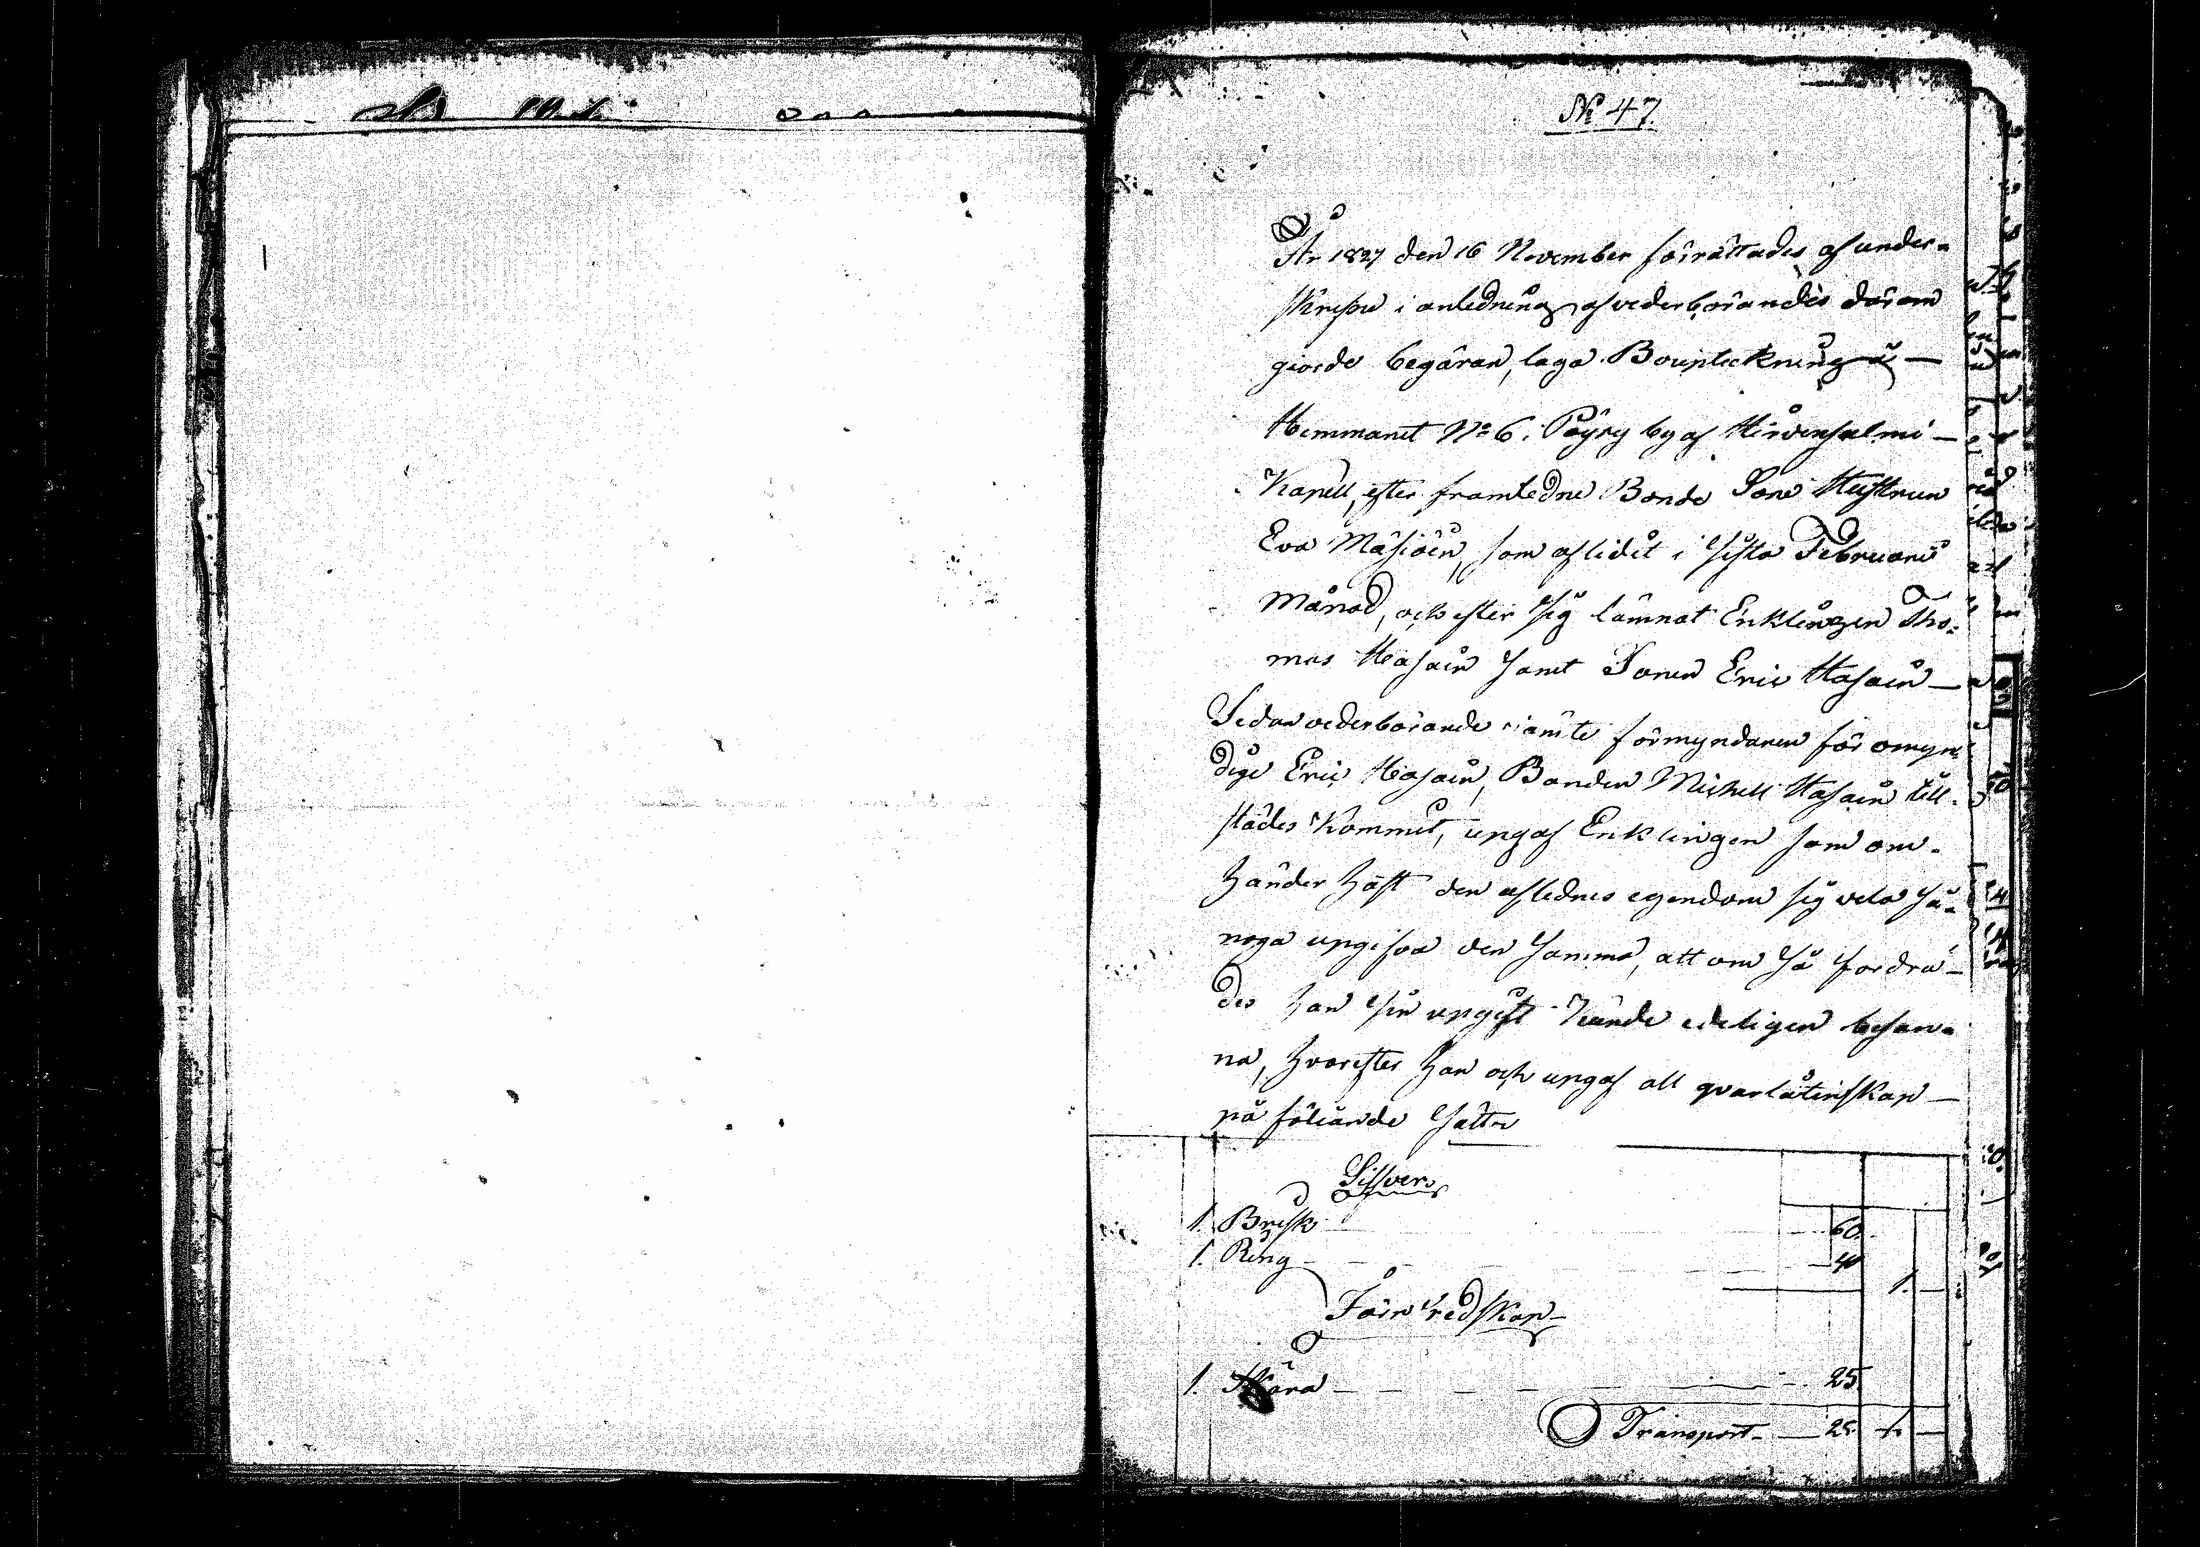 N: 47.
År 1827 den 16 November förrättades af under-
skrefne i anledning af vederbörandes därom
giorde begäran, laga Bouptekning å
Hemmanet N:o 6. Pöyry by af Hirvensalmi
Kapell, efter framledne Bonde Sone Hustrun
Eva Mäsiäin, som aflidit i sista Februarii
Månad, och efter sig lämnat Enklingen Tho-
mas Hasain samt Sonen Eric Hasain
Sedan vederbörande jämte förmyndaren för omyn-
dige Eric Hasain, Bonden Michell Hasain till-
städes kommit, upgaf Enklingen som om-
händer haft den aflednes egendom sig vela så
noga upgifva den samma, att om så fordra-
des han sin upgift kunde edeligen besan-
na, hvarefter han och upgaf all qvarlåtenskap
på föliande sätt
Silfver
1. Brisk 60
1. Ring 40 1.
Järn redskap
1. Skära 25
Transport 25 1.